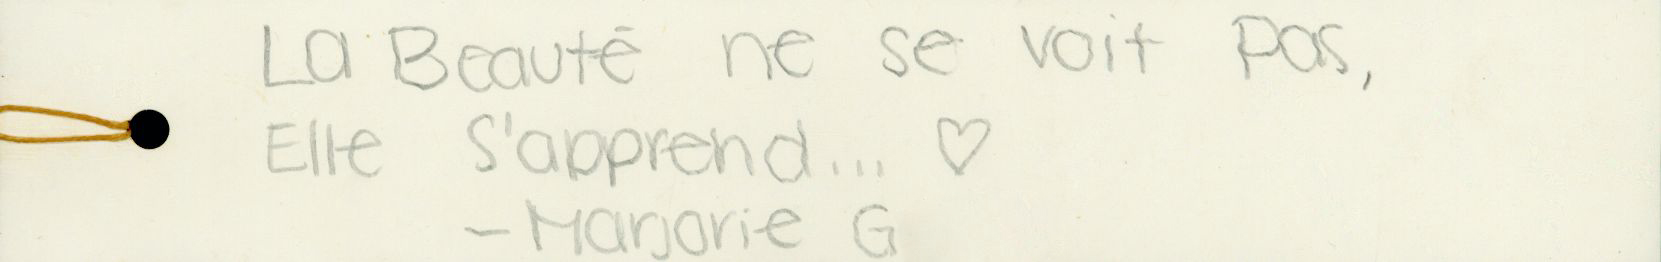 La Beauté ne se voit pas,
Elle S'apprend... ♡
- Marjorie G